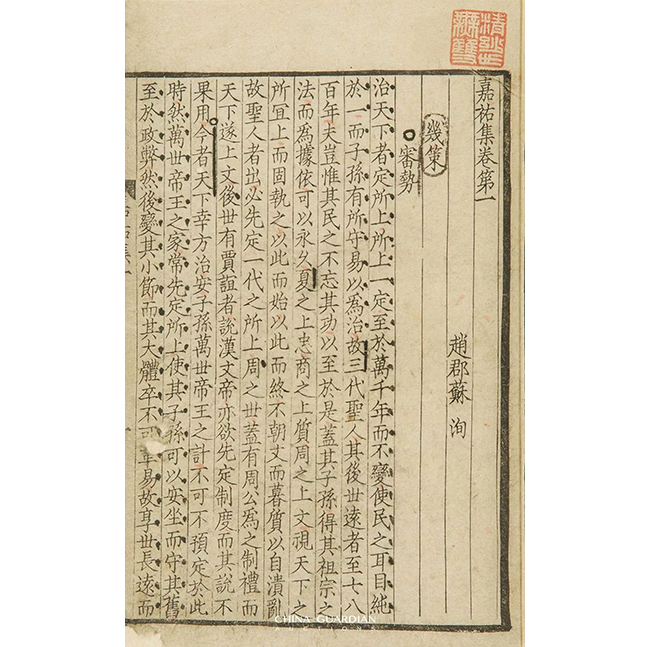 嘉祐集卷第一
趙郡蘇洵
幾策
審勢
治天下者定所上所上一定至於萬千年而不變使民之耳目純
於一而子孫有所守易以為治故三代聖人其後世遠者至七八
百年夫豈惟其民之不忘其功以至於是蓋其子孫得其祖宗之
法而為據依可以永久夏之上忠商之上質周之上文視天下之
所宜上而固執之以此而始以此而終不朝文而暮質以自潰亂
故聖人者出必先定一代之所上周之世蓋有周公為之制禮而
天下遂上文後世有賈誼者說漢文帝亦欲先定制度而其說不
果用今者天下幸方治安子孫萬世帝王之計不可不預定於此
時然萬世帝王之家常先定所上使其子孫可以安坐而守其舊
至於政弊然後變其小節而其大體卒不可革易故享世長遠而
CHINA GUARDIAN